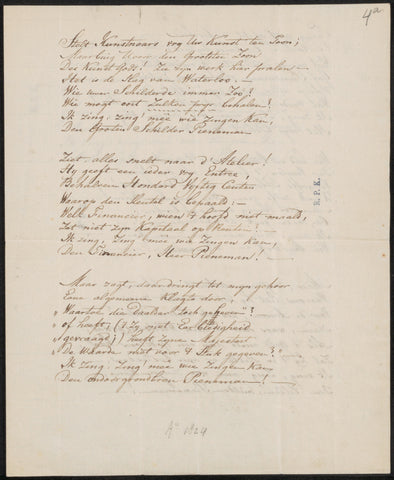 4a
Stelt Kunstenaars vry Uw Kunst ten Toon;
Maar buig Uvoor den Grootsten Zoon
Der Kunst Godt! Zie zyn werk hier pralen —
Het is de Slag van Waterloo.
Wie uwer Schilderde immer Zoo?
Wie mogt ooit Zulken prijs behalen?
Ik Zing, Zing meê wie Zingen kan,
Den Grooten Schilder Pieneman

Ziet, alles snelt naar d'Atelier!
Hy geeft een ieder vry Entrée,
Behalven Honderd Vyftig Centen
Waarop den Sleutel is bepaald: —
Welk Financier, wien 't hoofd niet maald,
Zet niet zyn Kapitaal op Renten?
Ik Zing, Zing meê wie Zingen kan,
Den Financier, Heer Pieneman!

Maar zagt, daar dringt tot myn gehoor
Eene algemeene Klagte door,
„Waartoe die Daalder toch gegeven?
„of heeft, ('t Zy met Eerbiedigheid
„gevraagd;) heeft Zyne Majesteit
„De Waarde niet voor 't Stuk gegeven?"
Ik Zing, Zing meê wie Zingen kan
Den ondoorgrondbren Pieneman!

Ao 1824
R.P.K.